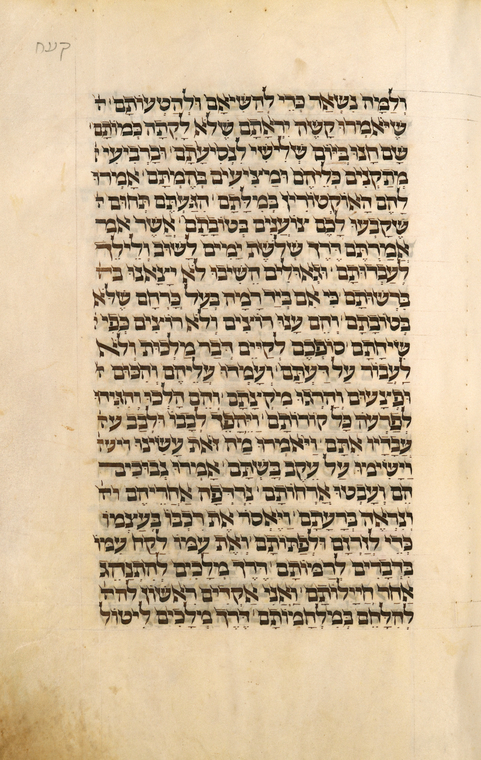 קעח
וְלָמָּה נִשְׁאַר כְּדֵי לְהַשִּׁיאָם וּלְהַסְעוֹתָם
שֶׁיֹּאמְרוּ קָשָׁה יִרְאָתָם שֶׁלֹּא לָקְתָה כְּמוֹתָם
שָׁם חָנוּ בְּיוֹם שְׁלִישִׁי לִנְסִיעָתָם וּבָרְבִיעִי
מְתַקְּנִים כְּלֵיהֶם וּמַצִּיעִים בְּהֶמְתָּם אָמְרוּ
לָהֶם הָאוֹקְטוֹרִין בְּמִלָּתָם הִגַּעְתֶּם תְּחוּם
שֶׁקָּבְעוּ לָכֶם צוֹעֲנִים בְּטוֹבָתָם אֲשֶׁר
אֲמַרְתֶּם דֶּרֶךְ שְׁלֹשֶׁת יָמִים לָשׁוּב וְלֵילֵךְ
לְעַבְדוּתָם וּגְאוּלִים הֵשִׁיבוּ לֹא יָצָאנוּ
בִּרְשׁוּתָם כִּי אִם בְּיָד רָמָה בְּעַל כָּרְחָם שֶׁלֹּא
בְּטוֹבָתָם וְהֵם עָנוּ רוֹצִים וְלֹא רוֹצִים כְּפִי
שִׂיחָתָם סוֹפְכֶם לְקַיֵּים דְּבַר מַלְכוּת וְלֹא
לַעֲבוֹר עַל דַּעְתָּם וְעָמְדוּ עֲלֵיהֶם וְהִכּוּם
וּפְצָעוּם וְהָרְגוּ מִקְצָתָם וְהֵם הָלְכוּ וְהִגִּידוּ
לְפַרְעֹה כָּל קוֹרוֹתָם וַיֵּהָפֵךְ לְבָבוֹ וּלְבַב
עֲבָדָיו אִתָּם וַיֹּאמְרוּ מַה זֹּאת עָשִׂינוּ
וַיָּשִׂימוּ עַל עֵקֶב בָּשְׁתָּם אָמְרוּ נְבוּכִים
הֵם וְעִבְּטוּ אָרְחוֹתָם נִרְדְּפָה אַחֲרֵיהֶם
וְנִרְאֶה בְּרָעָתָם וַיֶּאְסֹר אֶת רִכְבּוֹ בְּעַצְמוֹ
כְּדֵי לְזָרְזָם וּלְפַתּוֹתָם וְאֶת עַמּוֹ לָקַח עִמּוֹ
בִּדְבָרִים לְרַמּוֹתָם דֶּרֶךְ מְלָכִים לְהִתְנַהֵג
אַחַר חֲיָילוֹתָם וַאֲנִי אַקְדִּים רִאשׁוֹן
לְהִלָּחֵם בְּמִלְחֲמוֹתָם דֶּרֶךְ מְלָכִים לִיטּוֹל